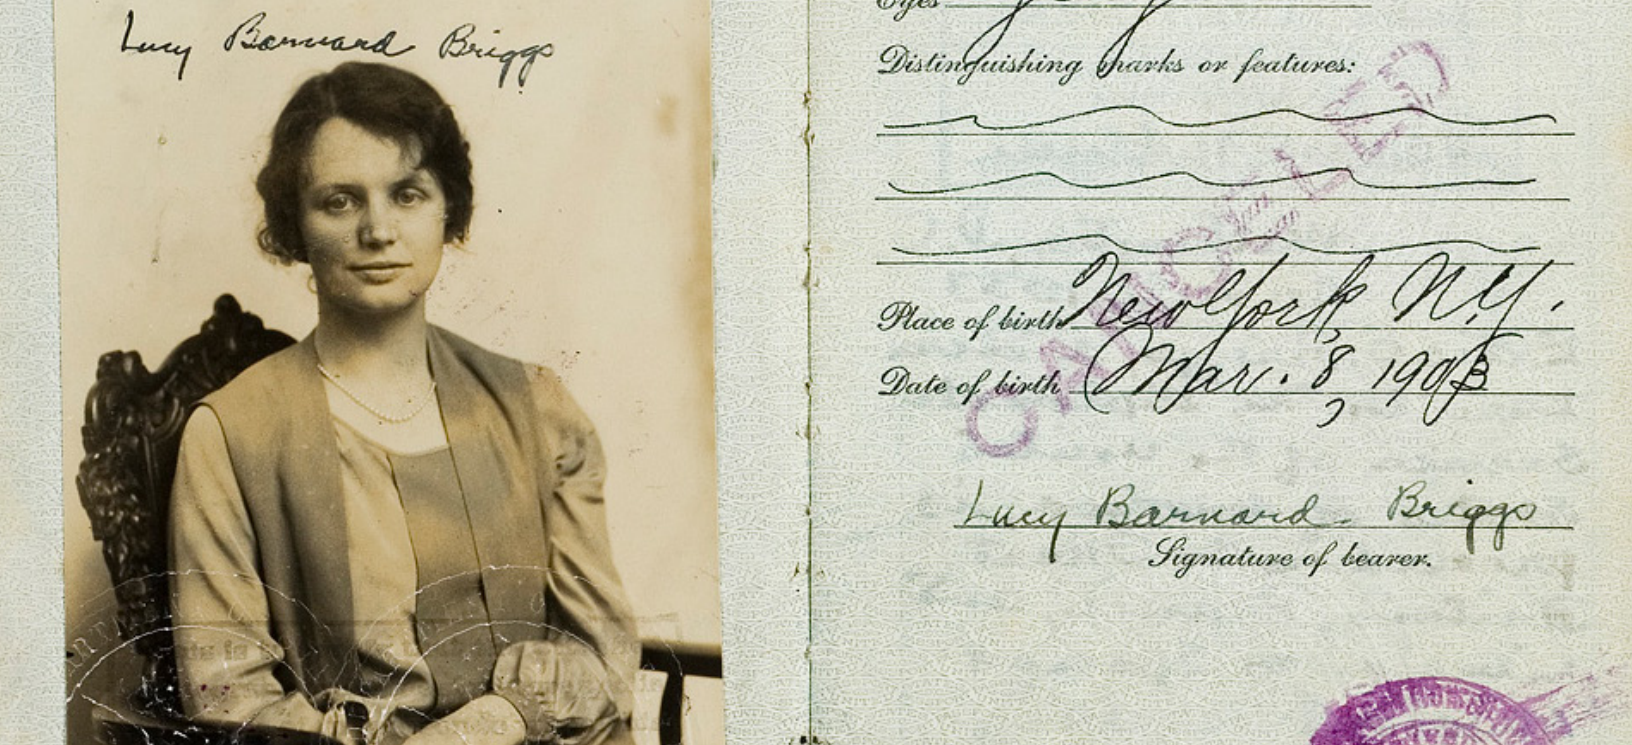 Lucy Barnard Briggs
Eyes
Distinguishing marks or features:
Place of birth New York, N.Y.
Date of birth Mar. 8, 1903
Lucy Barnard Briggs
Signature of bearer.
CANCELED